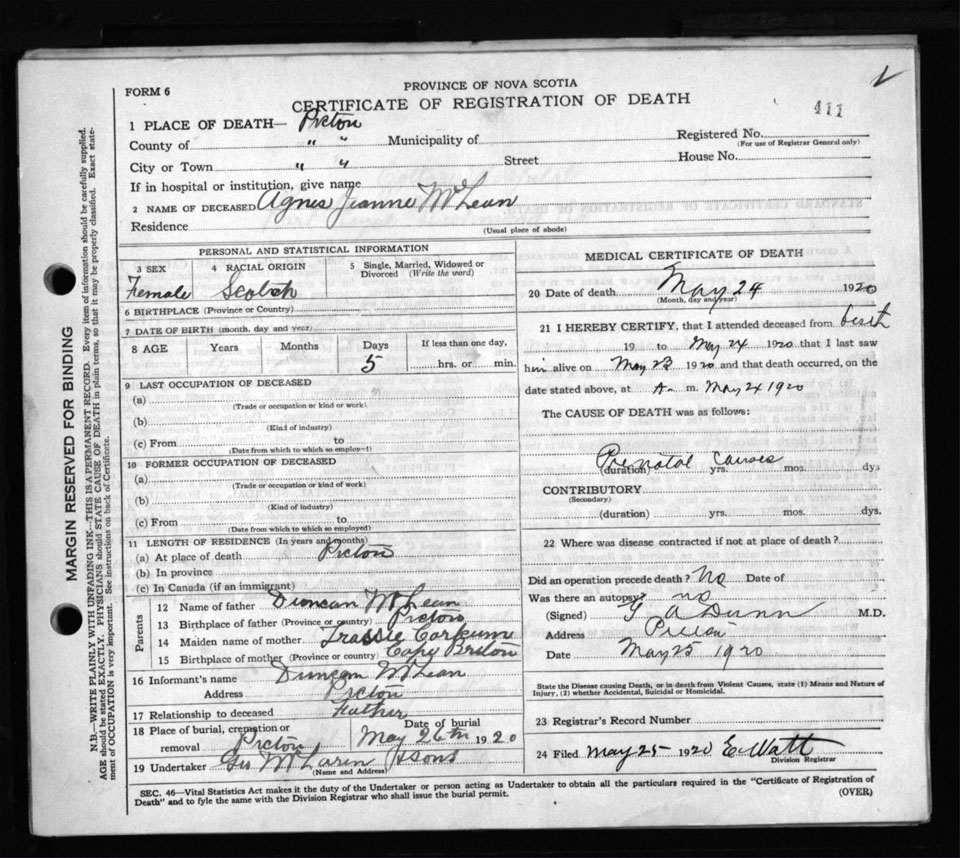 PROVINCE OF NOVA SCOTIA
FORM 6
CERTIFICATE OF REGISTRATION OF DEATH
411
1 PLACE OF DEATH— Picton
County of " " Municipality of Registered No.
(For use of Registrar General only)
City or Town " " Street House No.
If in hospital or institution, give name
2 NAME OF DECEASED Agnes Jeanne McLean
Residence (Usual place of abode)
PERSONAL AND STATISTICAL INFORMATION
3 SEX 4 RACIAL ORIGIN 5 Single, Married, Widowed or Divorced (Write the word)
Female Scotch
6 BIRTHPLACE (Province or Country)
7 DATE OF BIRTH (month, day and year)
8 AGE Years Months Days If less than one day,
5 hrs. or min.
9 LAST OCCUPATION OF DECEASED
(a)
(Trade or occupation or kind or work)
(b)
(Kind of industry)
(c) From to
(Date from which to which so employed)
10 FORMER OCCUPATION OF DECEASED
(a)
(Trade or occupation or kind of work)
(b)
(Kind of industry)
(c) From to
(Date from which to which so employed)
11 LENGTH OF RESIDENCE (In years and months)
(a) At place of death Picton
(b) In province
(c) In Canada (if an immigrant)
Parents
12 Name of father Duncan McLean
13 Birthplace of father (Province or country) Picton
14 Maiden name of mother Corkum
15 Birthplace of mother (Province or country) Cape Breton
16 Informant's name Duncan McLean
Address Picton
17 Relationship to deceased Father
18 Place of burial, cremation or removal Picton Date of burial May 26th 1920
19 Undertaker Geo McLaren & Sons
(Name and Address)
MEDICAL CERTIFICATE OF DEATH
20 Date of death May 24 1920
(Month, day and year)
21 I HEREBY CERTIFY, that I attended deceased from birth
19 to May 24 1920 that I last saw
him alive on May 23 1920 and that death occurred, on the
date stated above, at A m. May 24 1920
The CAUSE OF DEATH was as follows:
Prenatal causes
(duration) yrs. mos. dys
CONTRIBUTORY
(Secondary)
(duration) yrs. mos. dys.
22 Where was disease contracted if not at place of death?
Did an operation precede death? No Date of
Was there an autopsy? no
(Signed) G A Dunn M.D.
Address Picton
Date May 25 1920
State the Disease causing Death, or in death from Violent Causes, state (1) Means and Nature of
Injury, (2) whether Accidental, Suicidal or Homicidal.
23 Registrar's Record Number
24 Filed May 25 1920 E Watt
Division Registrar
SEC. 46—Vital Statistics Act makes it the duty of the Undertaker or person acting as Undertaker to obtain all the particulars required in the "Certificate of Registration of
Death" and to fyle the same with the Division Registrar who shall issue the burial permit. (OVER)
MARGIN RESERVED FOR BINDING
N.B.—WRITE PLAINLY WITH UNFADING INK—THIS IS A PERMANENT RECORD. Every item of information should be carefully supplied.
AGE should be stated EXACTLY. PHYSICIANS should STATE CAUSE OF DEATH in plain terms, so that it may be properly classified. Exact state-
ment of OCCUPATION is very important. See instructions on back of Certificate.